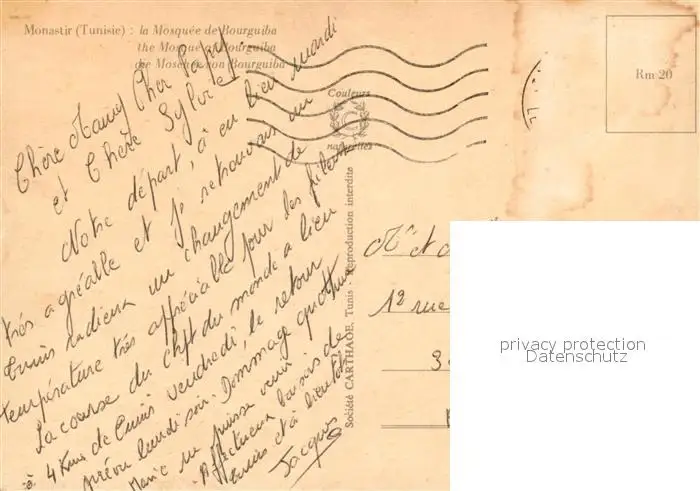 Monastir (Tunisie) : la Mosquée de Bourguiba
the Mosque of Bourguiba
die Moschee von Bourguiba
Rm 20
Couleurs
naturelles
Société CARTHAGE, Tunis - Reproduction interdite
Chère Mamy Cher Papy
et Chère Sylvie
Notre départ, a eu lieu mardi
très agréable et je retrouvais un
Tunis radieux un changement de
température très appréciable pour les
La course du Cht du monde a lieu
à 4 Kms de Tunis vendredi, le retour
prévu lundi soir. Dommage que
ne puisse venir
Affectueux baisers de
Tunis et à bientôt
Jacques
Mr et
12 rue
3
privacy protection
Datenschutz